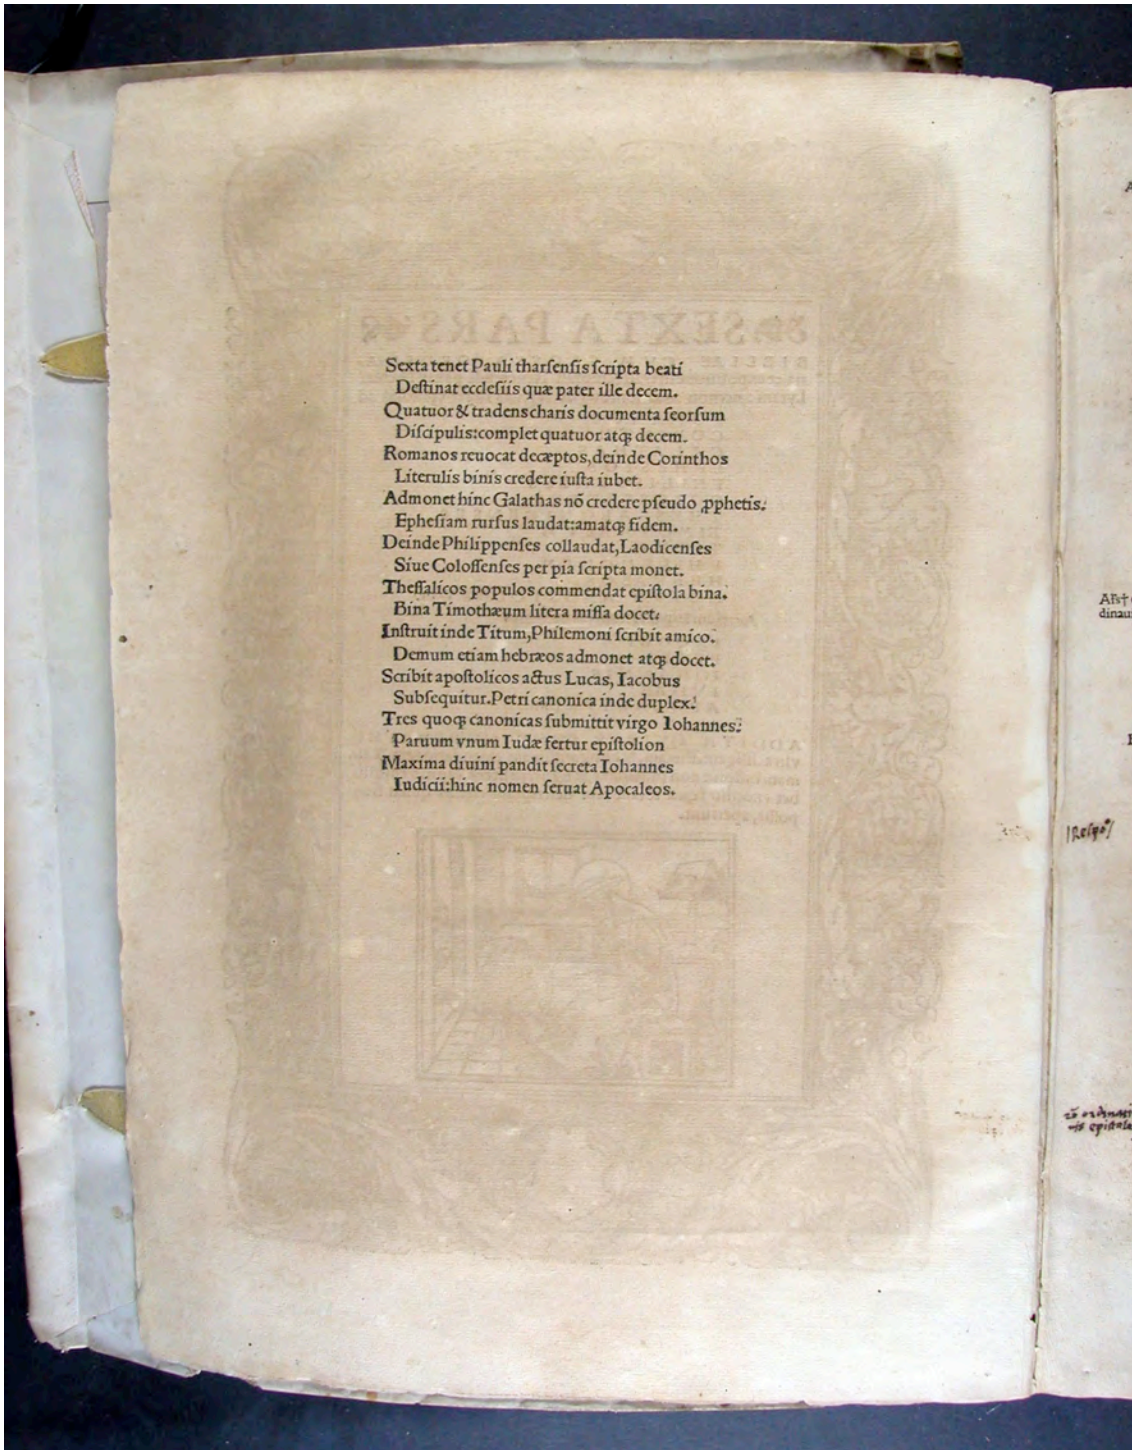 Sexta tenet Pauli tharſenſis ſcripta beati
Deſtinat eccleſiis quæ pater ille decem.
Quatuor & tradens charis documenta ſeorſum
Diſcipulis:complet quatuor atqꝫ decem.
Romanos reuocat decæptos,deinde Corinthos
Literulis binis credere iuſta iubet.
Admonet hinc Galathas nõ credere pſeudo ꝓphetis:
Epheſiam rurſus laudat:amatqꝫ fidem.
Deinde Philippenſes collaudat,Laodicenſes
Siue Coloſſenſes per pia ſcripta monet.
Theſſalicos populos commendat epiſtola bina.
Bina Timothæum litera miſſa docet:
Inſtruit inde Titum,Philemoni ſcribit amico.
Demum etiam hebræos admonet atqꝫ docet.
Scribit apoſtolicos actus Lucas, Iacobus
Subſequitur.Petri canonica inde duplex:
Tres quoqꝫ canonicas ſubmittit virgo Iohannes:
Paruum vnum Iudæ fertur epiſtolion
Maxima diuini pandit ſecreta Iohannes
Iudicii:hinc nomen ſeruat Apocaleos.
SEXTA PARS
dinau